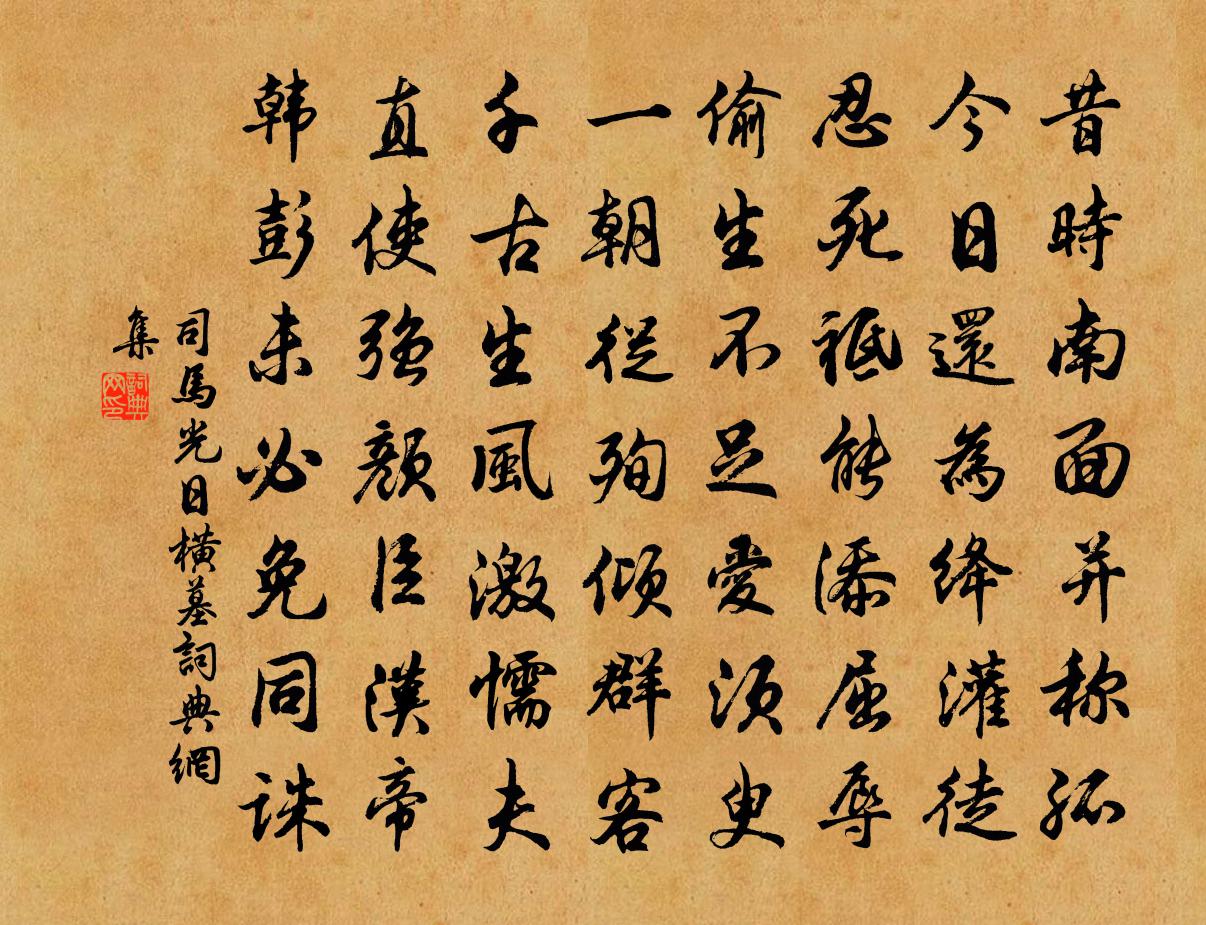 昔時南面并称孤
今日還為绛灌徒
忍死祗能添屈辱
偷生不足愛須臾
一朝從殉傾群客
千古生風激懦夫
直使强顏臣漢帝
韩彭未必免同诛
司馬光日橫墓詞典網
集
詞典网印